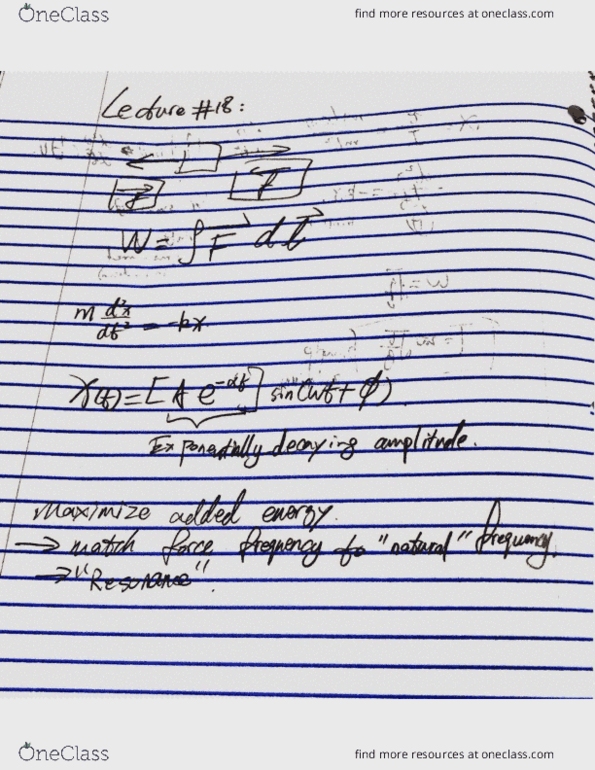 OneClass find more resources at oneclass.com
Lecture #18:
F F
W = ∫ F⃗ d l⃗
m d²x/dt² = -kx
X(t) = [A e^{-αt}] sin(ωt + φ)
Exponentially decaying amplitude.
Maximize added energy.
→ match force frequency to "natural" frequency.
→ "Resonance".
OneClass find more resources at oneclass.com